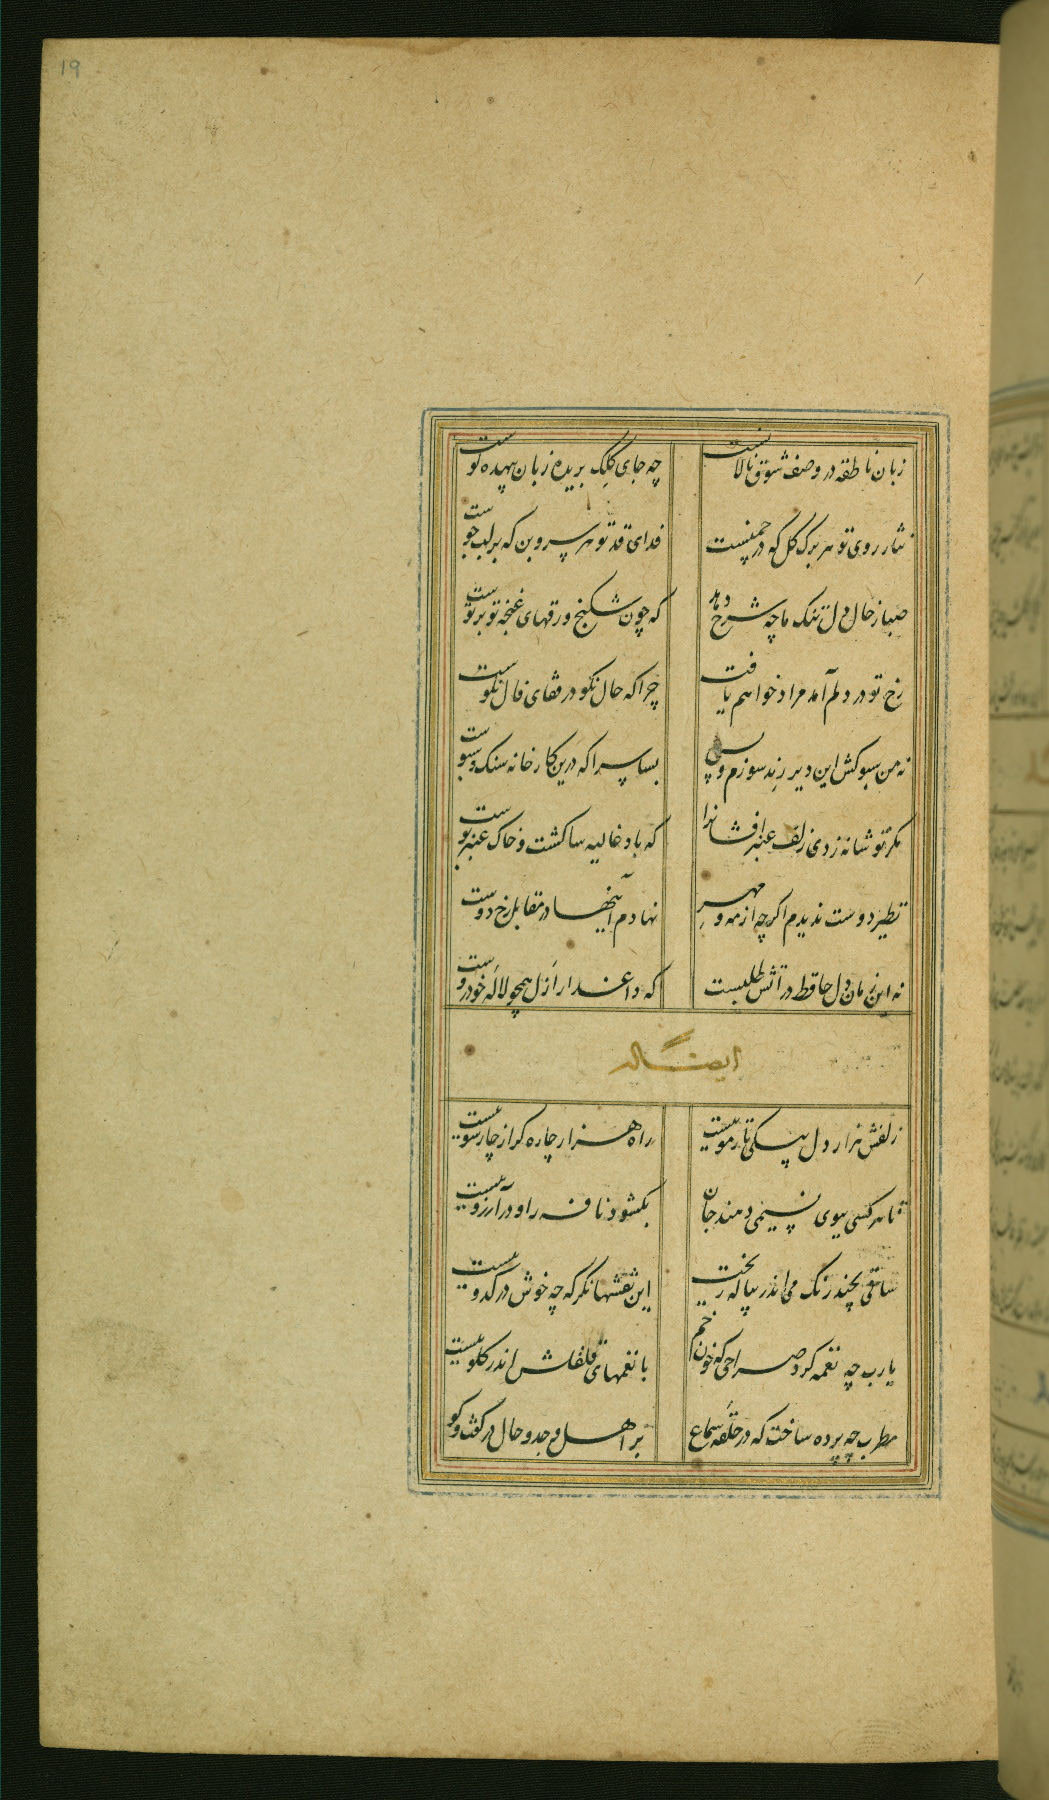 19
زبان ناطقه در وصف شوق نالانست
چه جای کلک بریده زبان بیهده گوست
نثار روی تو هر برک کل که در چمنیست
فدای قد تو هر سروبن که برلب جوست
صبا ز حال دل تنک ما چه شرح دهد
که چون شکنج ورقهای غنچه تو بر توست
رخ تو در دلم آمد مراد خواهم یافت
چرا که حال نکو در قفای فال نکوست
نه من سبوکش این دیر رندسوزم و بس
بسا سرا که درین کارخانه سنک و سبوست
مکر تو شانه زدی زلف عنبرافشانرا
که باد غالیه سا کشت و خاک عنبر بوست
نظیر دوست ندیدم اکرچه از مه و مهر
نهادم آینها در مقابل رخ دوست
نه این زمان دل حافظ در آتش طلبست
که داغدار ازل همچو لاله خودروست
ایضاله
زلفش هزار دل بیکی تار مو ببست
راه هزار چاره کر از چار سو ببست
تا هر کسی ببوی نسیمی دهند جان
بکشود نافه را و در آرزو ببست
ساقی بچند رنک می اندر پیاله ریخت
این نقشها نکر که چه خوش در کدو ببست
یارب چه نغمه کرد صراحی که خون خم
با نغمهای قلقلش اندر کلو ببست
مطرب چه پرده ساخت که در حلقه سماع
بر اهل وجد و حال در کفت و کو